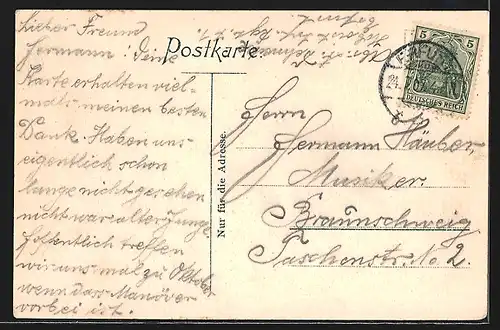 Lieber Freund
Hermann! Deine
Karte erhalten viel-
mals meinen besten
Dank. Haben uns
eigentlich schon
lange nicht gesehen
nicht war alter Junge
hoffentlich treffen
wir uns mal zu Oktober
wenn dass Manöver
vorbei ist.
Postkarte.
Nur für die Adresse.
5 5
DEUTSCHES REICH
Herrn
Hermann Häuber,
Musiker.
Braunschweig
Taschenstr. No 2.